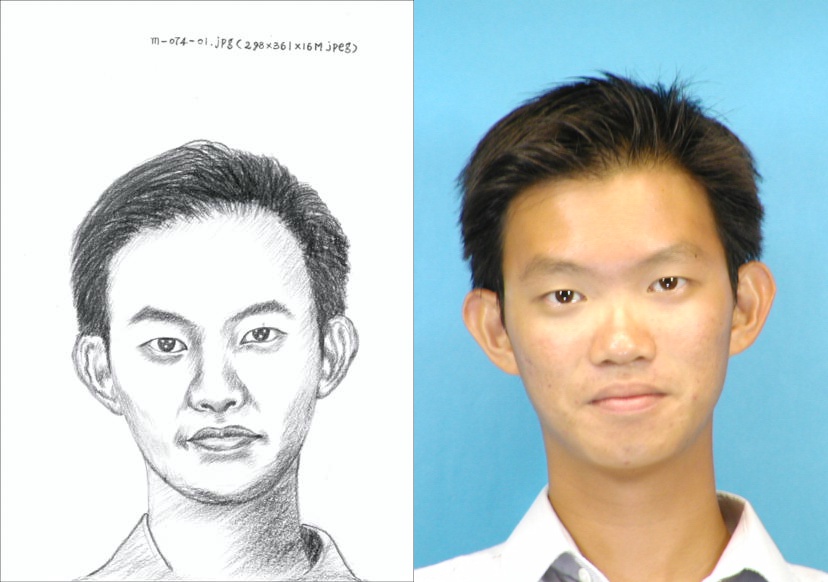 m-074-01.jpg(298×361×16M jpeg)